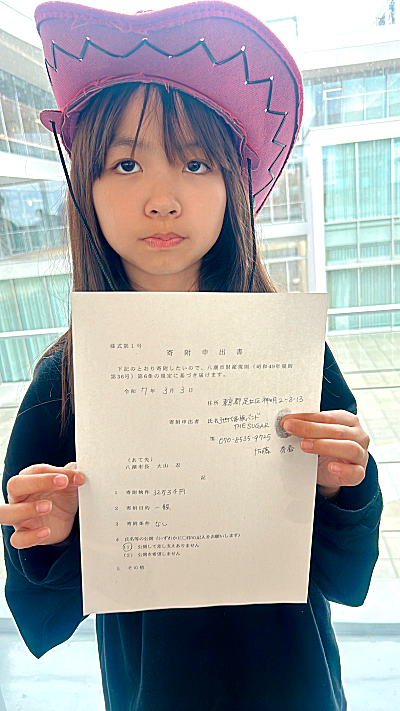 様式第1号
寄附申出書
下記のとおり寄附したいので、八潮市財産規則(昭和49年規則
第36号)第6条の規定に基づき届けます。
令和 7年 3月 3日
住所 東京都足立区神明2-3-13
寄附申出者 氏名 3世代家族バンド
THE SUGAR
電 070-8535-9725
佐藤
(あて先)
八潮市長 大山 忍
記
1 寄附物件 32834円
2 寄附目的 一般
3 寄附条件 なし
4 氏名等の公開(いずれかに○印の記入をお願いします)
(1) 公開して差し支えありません
(2) 公開を希望しません
5 その他